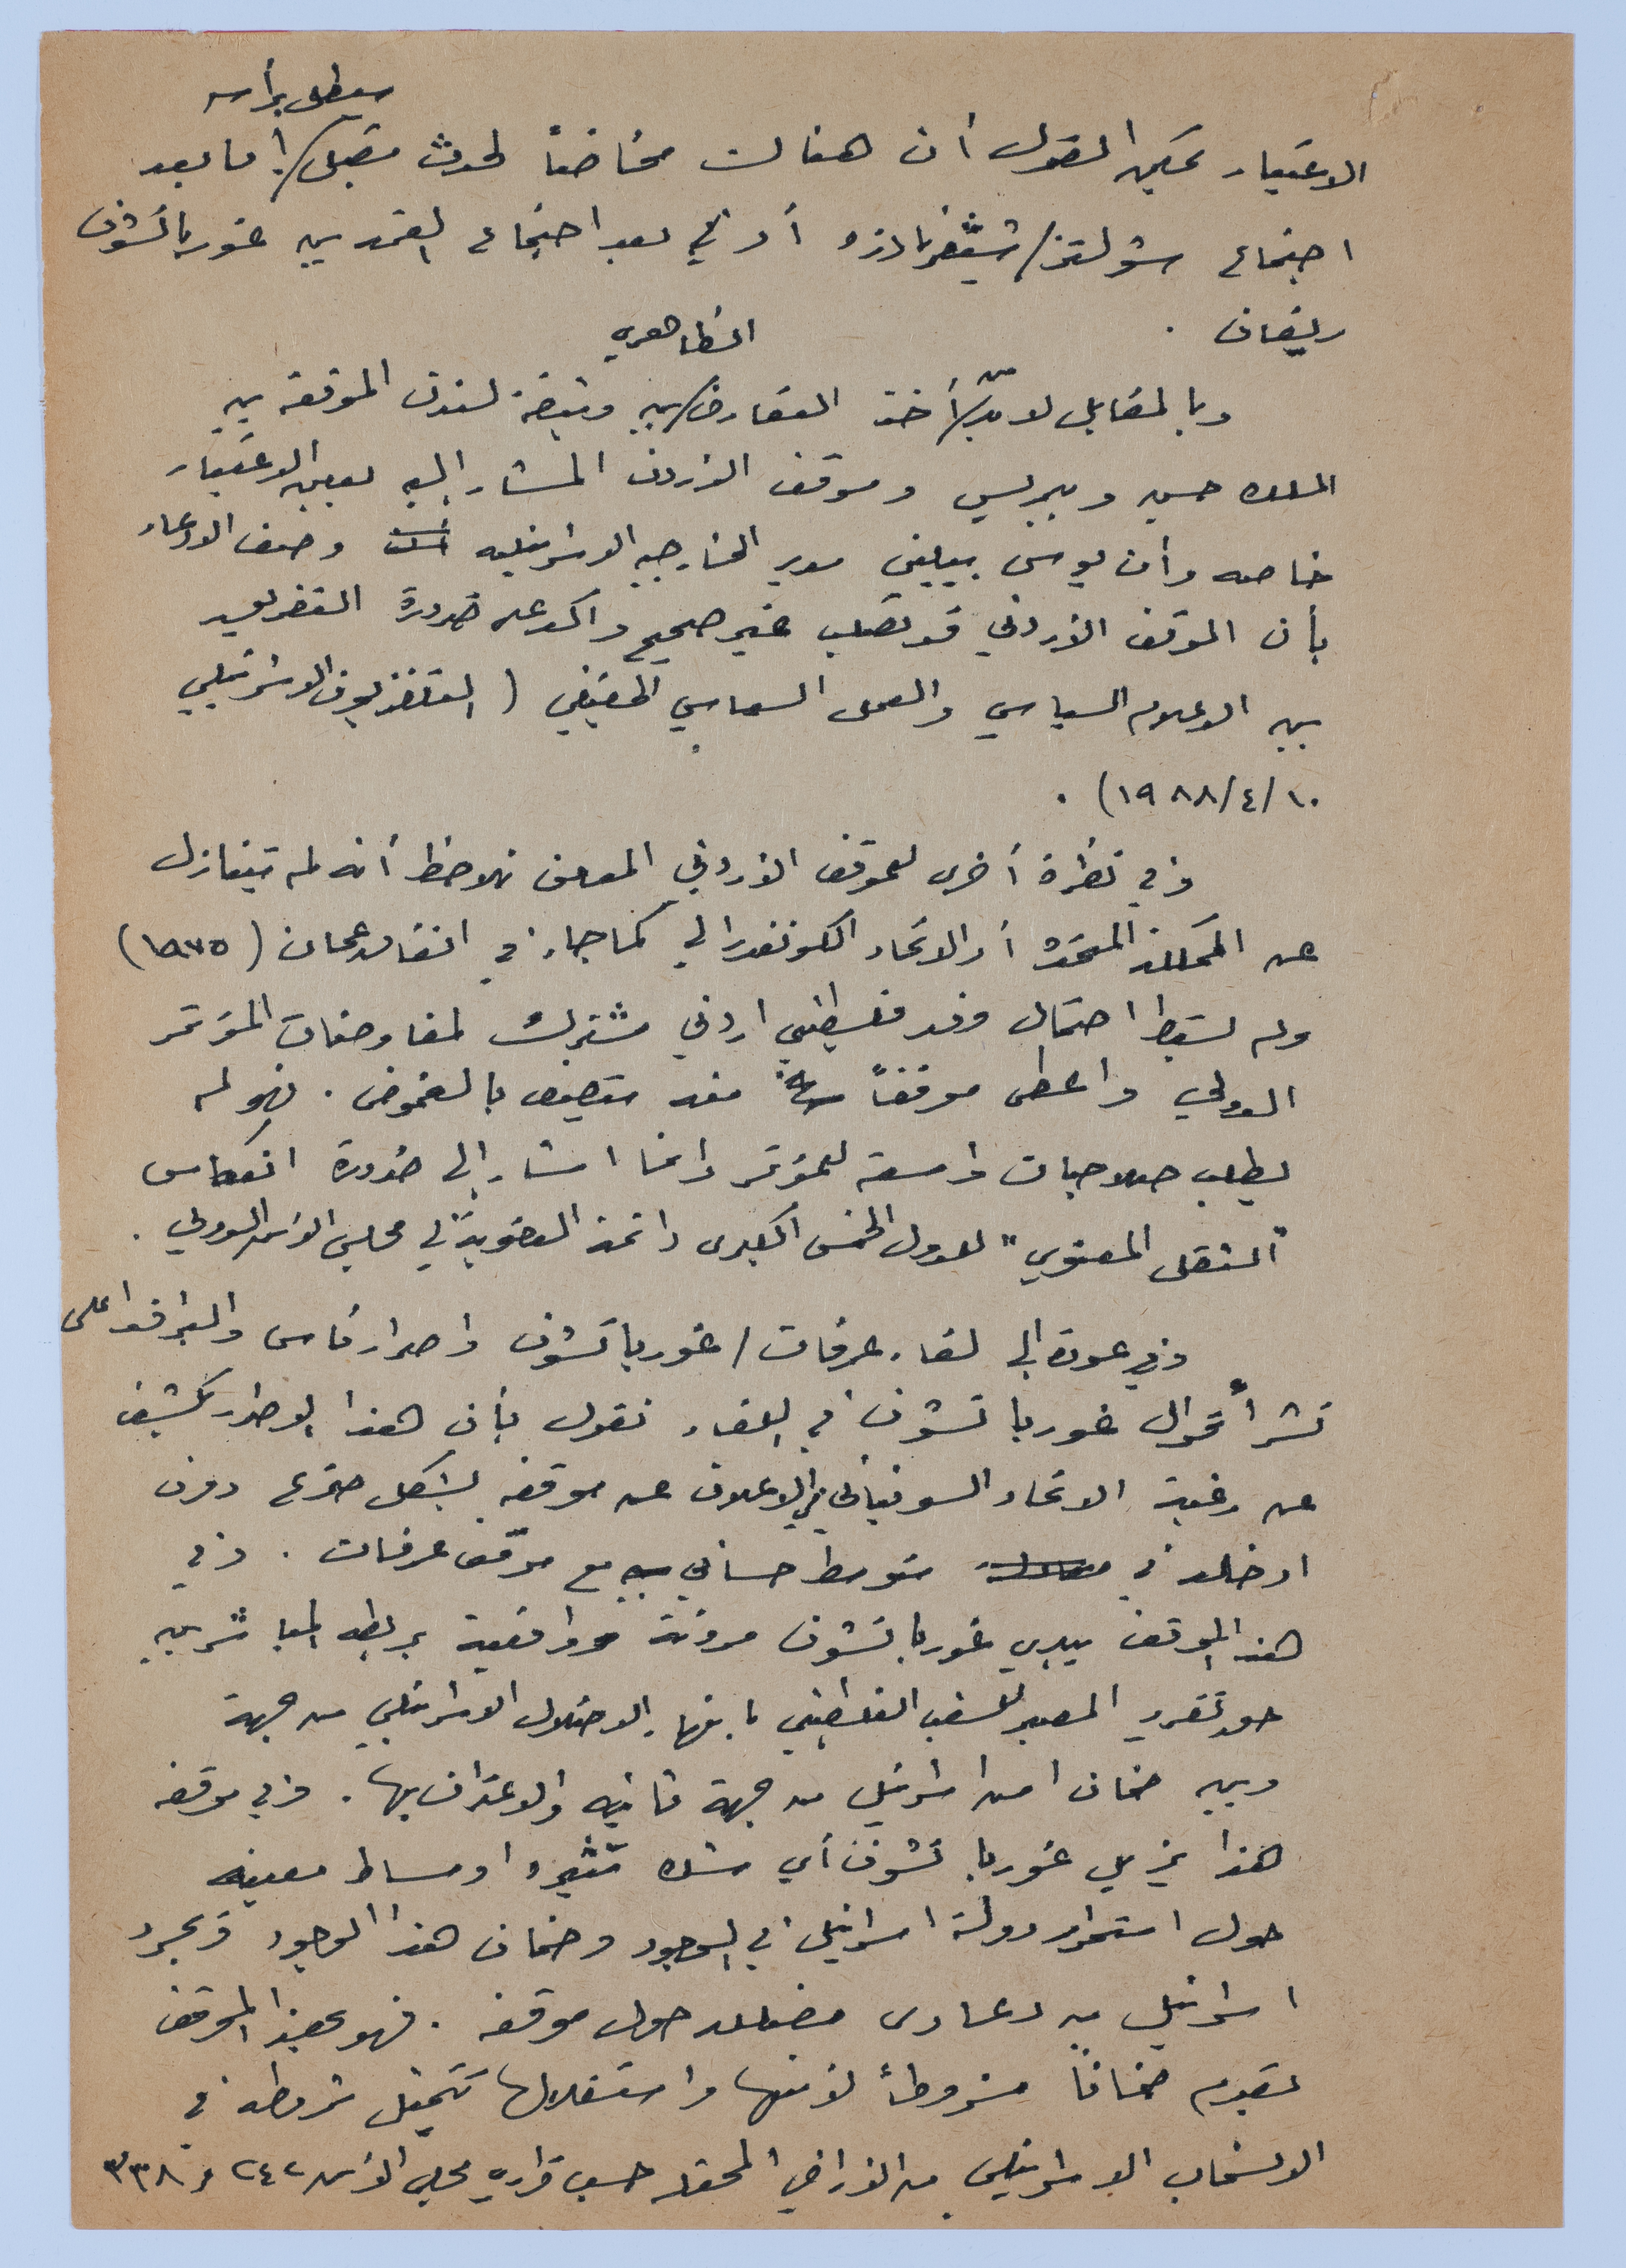 سيطل برأسه
الاعتبار يمكن القول أن هنالك مخاضاً لحدث مقبل / اما بعد
اجتماع شولتز/شيفرنادزه أو في بعد اجتماع القمة بين غورباتشوف
ريغان .
الظاهري
وبالمقابل لا بدّ من أخذ التعارض / بين وثيقة لندن الموقعة بين
الملك حسين وبيريس وموقف الأردن المشار إليه بعين الاعتبار
خاصة وأن يوسي بيلين مدير الخارجية الاسرائيلية وصف الادعاء
بأن الموقف الأردني قد تصلب غير صحيح وأكد على ضرورة التفريق
بين الاعلام السياسي والعمل السياسي الحقيقي ( التلفزيون الاسرائيلي
١٠/٤/١٩٨٨) .
وفي نظرة أخرى للموقف الأردني المعلن نلاحظ أنه لم يتنازل
عن المملكة المتحدة أو الاتحاد الكونفدرالي كما جاء في اتفاق عمان (١٩٨٥)
ولم يسقط احتمال وفد فلسطيني اردني مشترك لمفاوضات المؤتمر
الدولي واعطى موقفاً منه يتصف بالغموض . فهو لم
يطلب صلاحيات واسعة للمؤتمر وانما اشار إلى ضرورة انعكاس
"الثقل المعنوي" للدول الخمس الكبرى دائمة العضوية في مجلس الأمن الدولي .
وفي عودة إلى لقاء عرفات / غورباتشوف واصرار تاس والبرافدا على
نشر أقوال غورباتشوف في اللقاء نقول بأن هذا الاصرار يكشف
عن رغبة الاتحاد السوفياتي في الاعلان عن موقفه بشكل صريح دون
ادخاله في متوسط حسابي مع موقف عرفات . وفي
هذا الموقف يبدي غورباتشوف مرونة وواقعية بربطه المباشر بين
حق تقرير المصير للشعب الفلسطيني بانهاء الاحتلال الاسرائيلي من جهة
وبين ضمان امن اسرائيل من جهة ثانية والاعتراف بها . وفي موقفه
هذا يزيل غورباتشوف أي شك تثيره اوساط معينة
حول استمرار دولة اسرائيل في الوجود وضمان هذا الوجود ويجرد
اسرائيل من دعاوى مضللة حول موقفه . فهو بهذا الموقف
يقدم ضماناً مشروطاً لأمنها واستقلالها تتمثل شروطه في
الانسحاب الاسرائيلي من الأراضي المحتلة حسب قراري مجلس الأمن ٢٤٢ و ٣٣٨